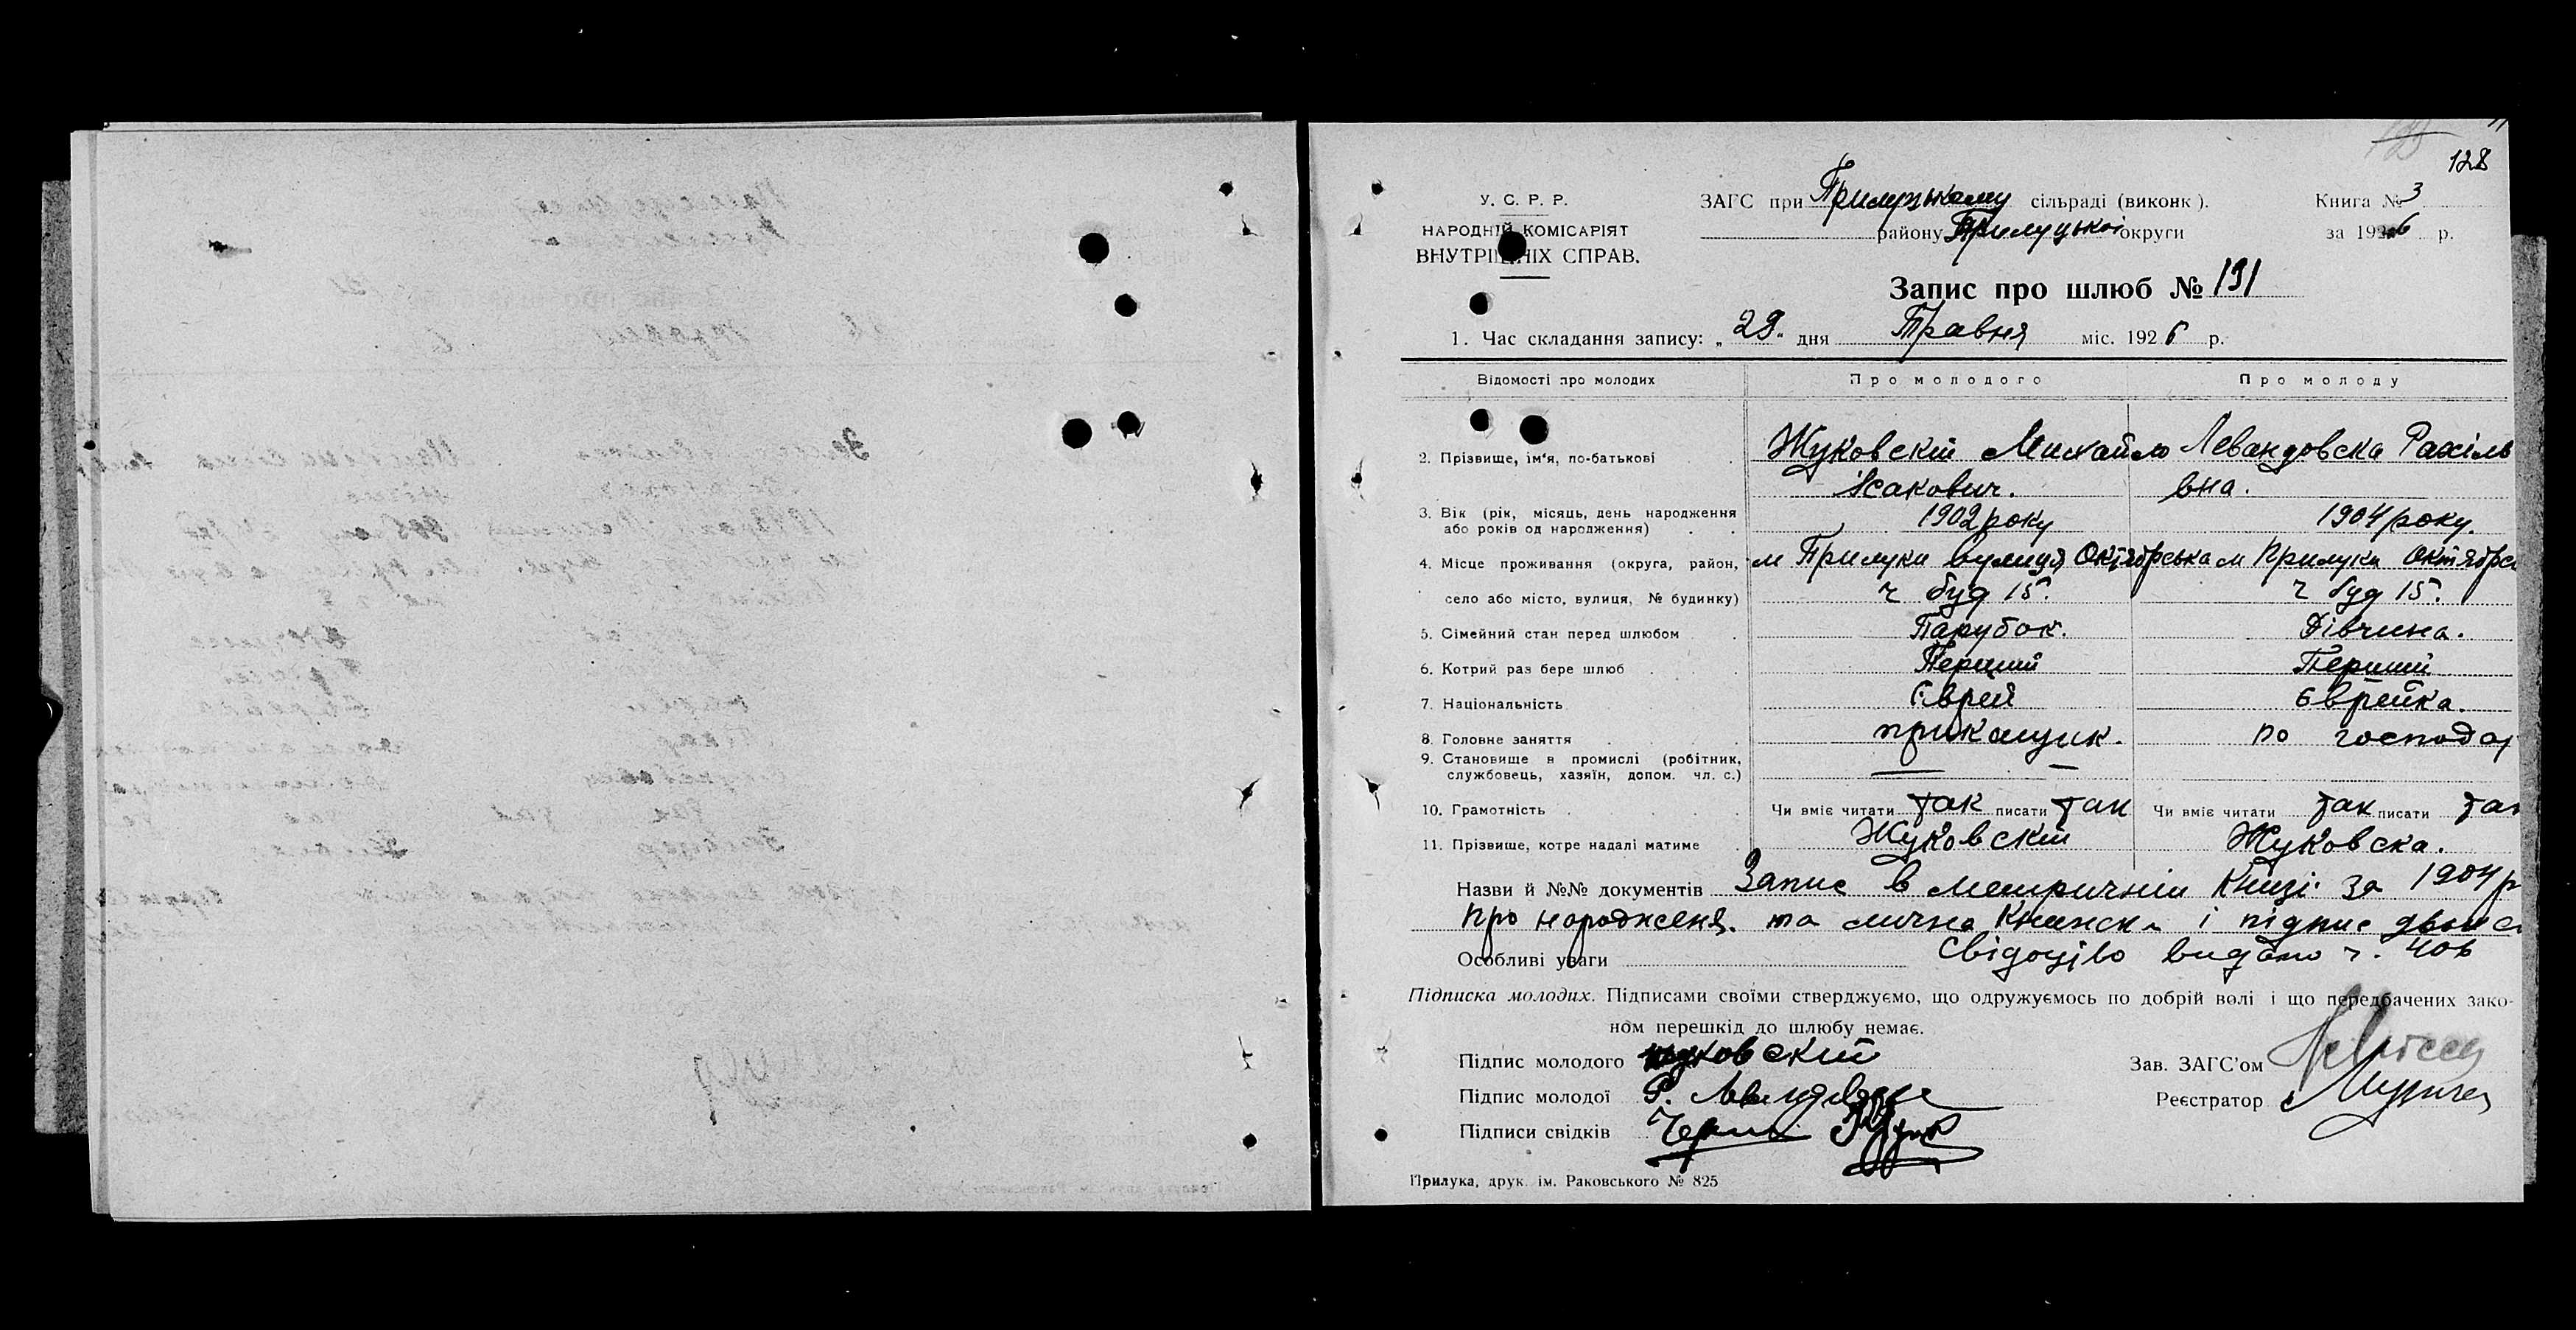 128
У. С. Р. Р.
НАРОДНІЙ КОМІСАРІЯТ
ВНУТРІШНІХ СПРАВ.
ЗАГС при Прилуцькому сільраді (виконк).
району Прилуцької округи
Книга № 3
за 1926 р.
Запис про шлюб № 191
1. Час складання запису: „29" дня Травня міс. 1926 р.
Відомості про молодих Про молодого Про молоду
2. Прізвище, ім'я, по-батькові Жуковскій Михайло Левандовска Рахіль
Ісакович. вна.
3. Вік (рік, місяць, день народження
або років од народження) 1902 року 1904 року.
4. Місце проживання (округа, район, м Прилуки вулиця Октябрська м Прилуки Октябрс
село або місто, вулиця, № будинку) ч буд 15. ч буд 15.
5. Сімейний стан перед шлюбом Парубок. Дівчина.
6. Котрий раз бере шлюб Перший Перший
7. Національність Єврей Єврейка.
8. Головне заняття прикащик. по господар
9. Становище в промислі (робітник,
службовець, хазяїн, допом. чл. с.) — —
10. Грамотність Чи вміє читати так писати так Чи вміє читати так писати так
11. Прізвище, котре надалі матиме Жуковскій Жуковска.
Назви й №№ документів Запис в метричній Книзі за 1904 р
про народженя. та лична Книжка і підпис двои с
Особливі уваги Свідоцтво видано ч. 406
Підписка молодих. Підписами своїми стверджуємо, що одружуємось по добрій волі і що передбачених зако-
ном перешкід до шлюбу немає.
Підпис молодого Жуковский
Зав. ЗАГС'ом
Підпис молодої Р.
Реєстратор
Підписи свідків
Прилука, друк. ім. Раковського № 825